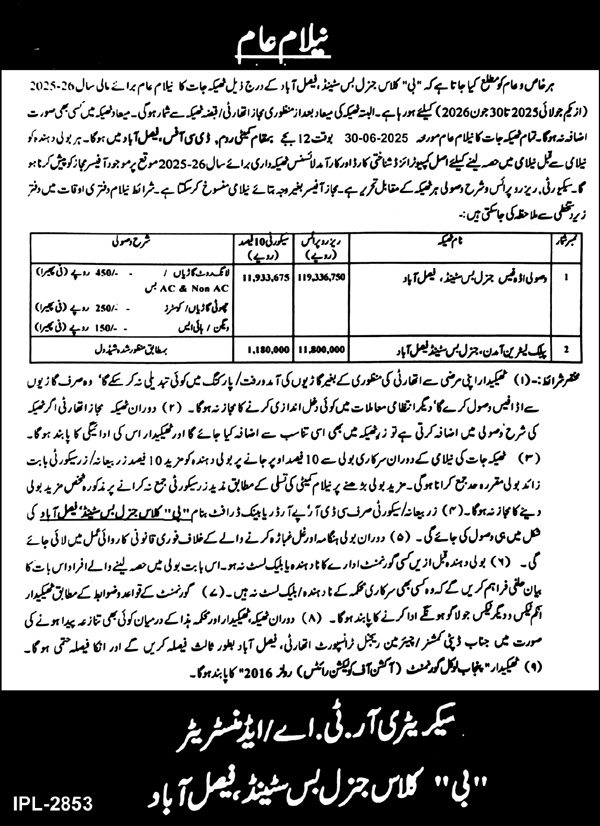 نیلام عام
ہر خاص و عام کو مطلع کیا جاتا ہے کہ "بی" کلاس جنرل بس سٹینڈ، فیصل آباد کے درج ذیل ٹھیکہ جات کا نیلام عام برائے مالی سال 26-2025
(از یکم جولائی 2025 تا 30 جون 2026) کیلئے ہو رہا ہے۔ البتہ ٹھیکہ کی میعاد بعد از منظوری مجاز اتھارٹی / قبضہ ٹھیکہ سے شمار ہو گی۔ میعاد ٹھیکہ میں کسی بھی صورت
اضافہ نہ ہو گا۔ تمام ٹھیکہ جات کا نیلام عام مورخہ 30-06-2025 بوقت 12 بجے بمقام کمیٹی روم، ڈی سی آفس، فیصل آباد میں ہو گا۔ ہر بولی دہندہ کو
نیلامی سے قبل نیلامی میں حصہ لینے کیلئے اصل کمپیوٹرائزڈ شناختی کارڈ اور کارآمد لائسنس ٹھیکیداری برائے سال 26-2025 موقع پر موجود آفیسر مجاز کو پیش کرنا ہو
گا۔ سیکیورٹی، ریزرو پرائس و شرح وصولی ہر ٹھیکہ کے مقابل تحریر ہے۔ مجاز آفیسر بغیر وجہ بتائے نیلامی منسوخ کر سکتا ہے۔ شرائط نیلام دفتری اوقات میں دفتر
زیر دستخطی سے ملاحظہ کی جا سکتی ہیں:-
نمبر شمار نام ٹھیکہ ریزرو پرائس (روپے) سیکورٹی 10 فیصد (روپے) شرح وصولی
1 وصولی اڈہ فیس جنرل بس سٹینڈ، فیصل آباد 119,336,750 11,933,675 لانگ روٹ گاڑیاں / AC & Non AC بس - 450/- روپے (فی پھیرا)
چھوٹی گاڑیاں/کوسٹرز - 250/- روپے (فی پھیرا)
ویگن / ہائی ایس - 150/- روپے (فی پھیرا)
2 پبلک لیٹرین آمدن، جنرل بس سٹینڈ فیصل آباد 11,800,000 1,180,000 بمطابق منظور شدہ شیڈول
مختصر شرائط:- (۱) ٹھیکیدار اپنی مرضی سے اتھارٹی کی منظوری کے بغیر گاڑیوں کی آمدورفت / پارکنگ میں کوئی تبدیلی نہ کر سکے گا‘ وہ صرف گاڑیوں
سے اڈا فیس وصول کرے گا‘ دیگر انتظامی معاملات میں کوئی دخل اندازی کرنے کا مجاز نہ ہو گا۔ (۲) دوران ٹھیکہ مجاز اتھارٹی اگر ٹھیکہ
کی شرح وصولی میں اضافہ کرتی ہے تو زر ٹھیکہ میں بھی اسی تناسب سے اضافہ کیا جائے گا اور ٹھیکیدار اس کی ادائیگی کا پابند ہو گا۔
(۳) ٹھیکہ جات کی نیلامی کے دوران سرکاری بولی سے 10 فیصد اوپر جانے پر بولی دہندہ کو مزید 10 فیصد زر بیعانہ / زر سیکورٹی بابت
زائد بولی مقررہ حد جمع کرانا ہو گی۔ مزید بولی بڑھنے پر نیلام کمیٹی کی تسلی کے مطابق مزید زر سیکورٹی جمع نہ کرانے پر مذکورہ شخص مزید بولی
دینے کا مجاز نہ ہو گا۔ (۴) زر بیعانہ / سیکورٹی صرف سی ڈی آر / پے آرڈر یا بینک ڈرافٹ بنام "بی" کلاس جنرل بس سٹینڈ، فیصل آباد کی
شکل میں ہی وصول کی جائے گی۔ (۵) دوران بولی ہنگامہ اور غل غپاڑہ کرنے والے کے خلاف فوری قانونی کاروائی عمل میں لائی جائے
گی۔ (۶) بولی دہندہ قبل ازیں کسی گورنمنٹ ادارے کا نادہندہ یا بلیک لسٹ نہ ہو۔ اس بابت بولی میں حصہ لینے والے افراد اس بات کا
بیان حلفی فراہم کریں گے کہ وہ کسی بھی سرکاری محکمہ کے نادہندہ / بلیک لسٹ نہ ہیں۔ (۷) گورنمنٹ کے قواعد و ضوابط کے مطابق ٹھیکیدار
انکم ٹیکس و دیگر ٹیکس جو لاگو ہونگے ادا کرنے کا پابند ہو گا۔ (۸) دوران ٹھیکہ، ٹھیکیدار اور محکمہ ہذا کے درمیان کوئی بھی تنازعہ پیدا ہونے کی
صورت میں جناب ڈپٹی کمشنر / چیئرمین ریجنل ٹرانسپورٹ اتھارٹی، فیصل آباد بطور ثالث فیصلہ کریں گے اور انکا فیصلہ حتمی ہو گا۔
(۹) ٹھیکیدار "پنجاب لوکل گورنمنٹ (آکشن آف کولیکشن رائٹس) رولز 2016" کا پابند ہو گا۔
سیکریٹری آر۔ٹی۔اے/ایڈمنسٹریٹر
"بی" کلاس جنرل بس سٹینڈ، فیصل آباد
IPL-2853